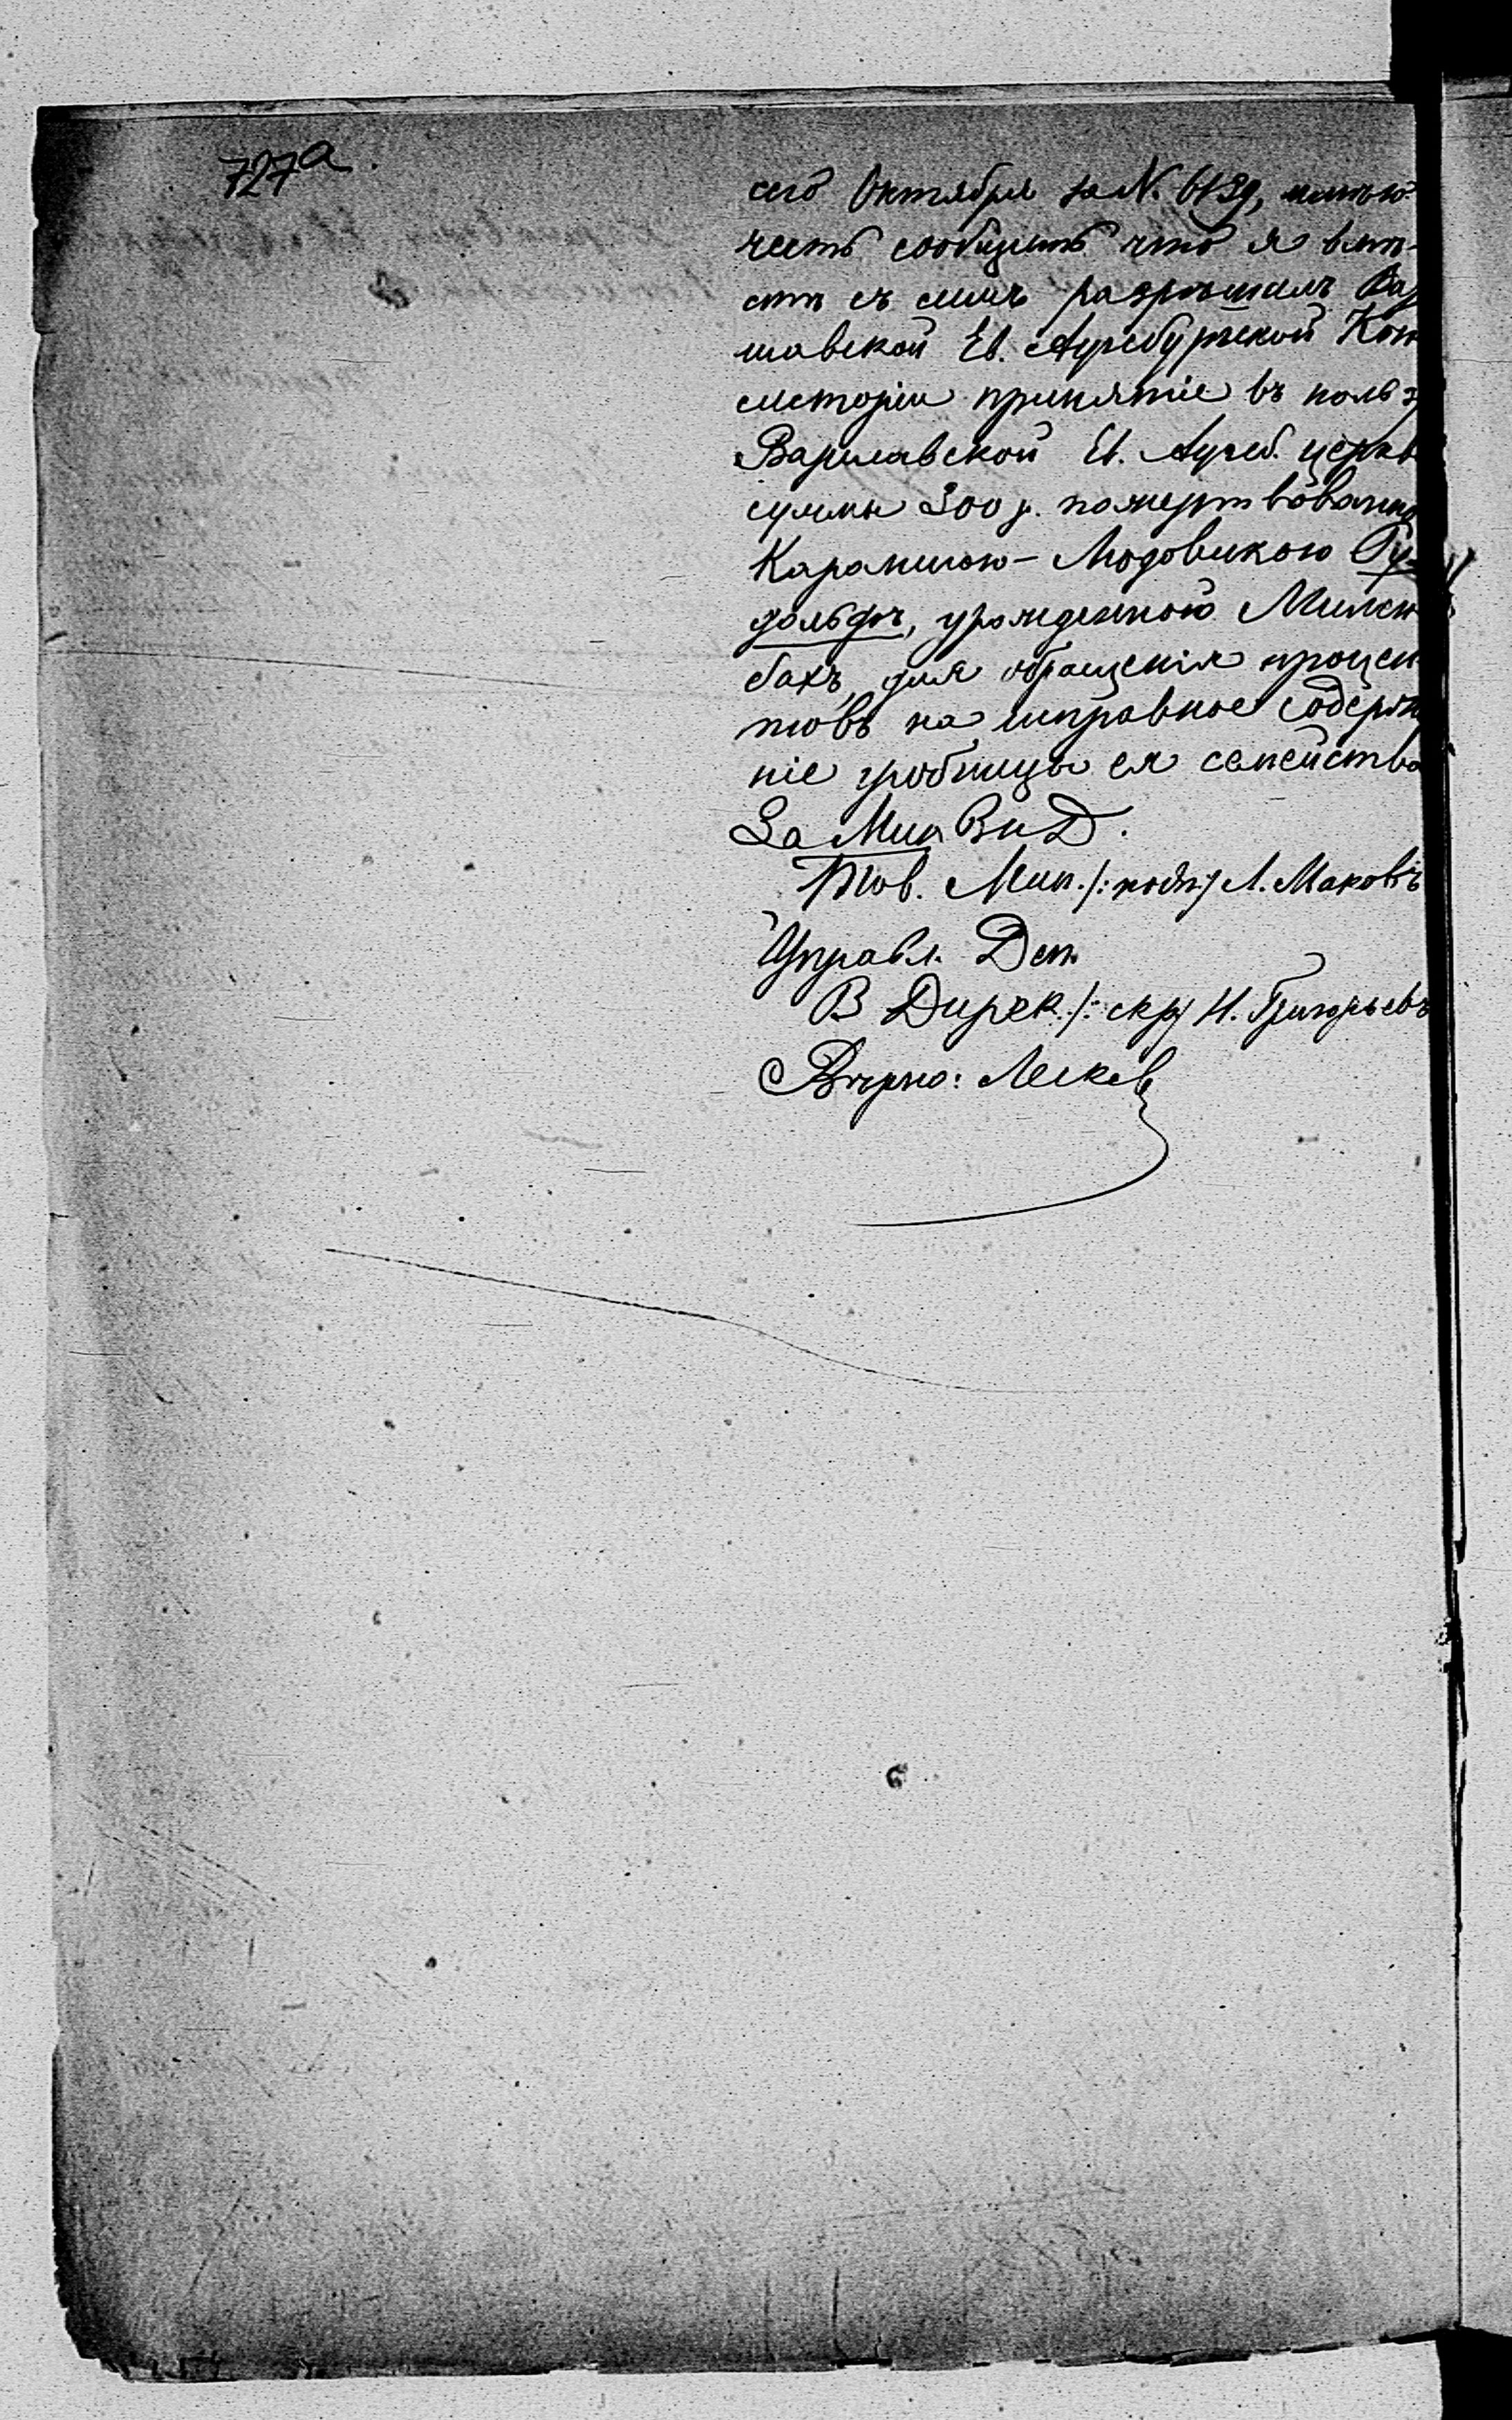 727а.
сего Октября за N. 6139, имѣю
честь сообщить что я вмѣ-
стѣ съ симъ разрѣшилъ Вар
шавской Ев. Аугсбургской Кон
систоріи принятіе въ польз
Варшавской Ев. Аугсб. церкв
суммы 300 р. пожертвованно
Каролиною-Людовикою Ру-
дольфъ, урожденною Милен
бахъ, для обращенія процен
товъ на исправное содержа
ніе гробницы ея семейства
За Мин ВнД.
Тов. Мин. /: подп :/ Л. Маковъ
Управл. Деп.
В Дирек. /: скр / Н. Григорьевъ
Вѣрно: